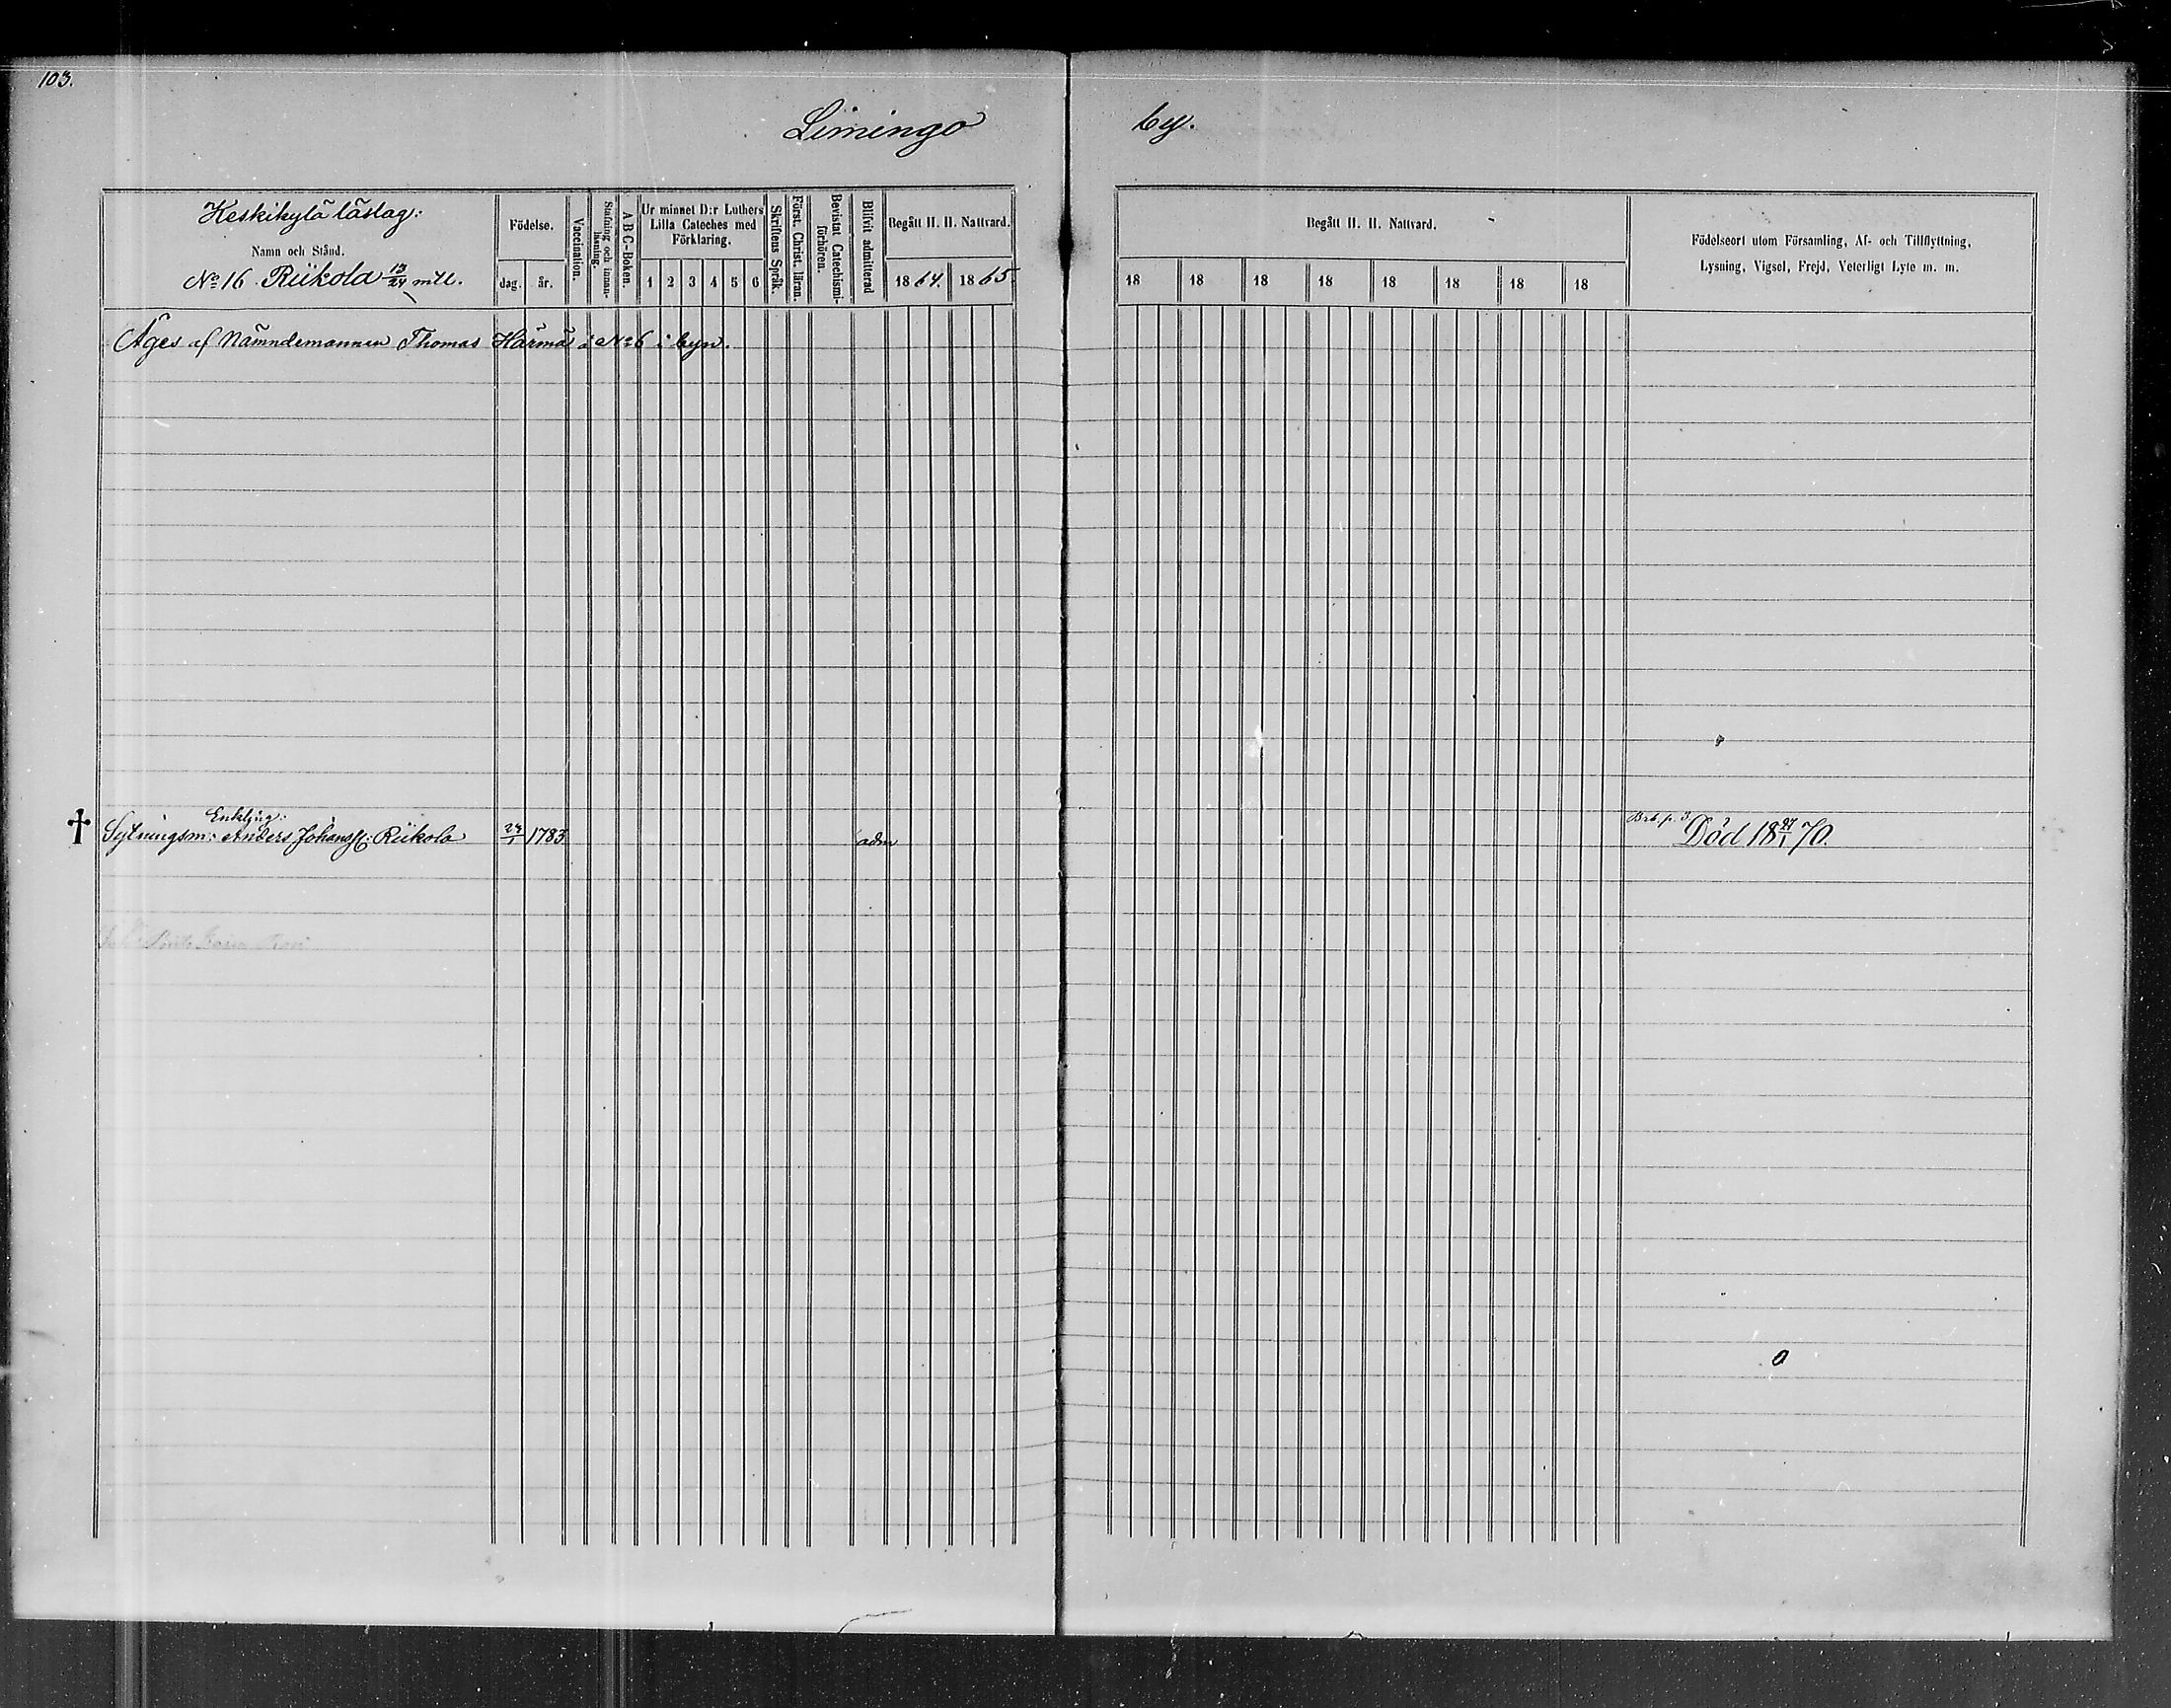 103.
Limingo by.
Keskikylä läslag:
Namn och Stånd.
No 16 Riikola 13/24 mtl.
Födelse.
dag. år.
Vaccination.
Stafning och innanläsning.
A B C-Boken.
Ur minnet D:r Luthers Lilla Cateches med Förklaring.
1 2 3 4 5 6
Skriftens Språk.
Först. Christ. läran.
Bevistat Catechismiförhören.
Blifvit admitterad
Begått H. H. Nattvard.
18 64. 18 65.
Begått H. H. Nattvard.
18 18 18 18 18 18 18 18
Födelseort utom Församling, Af- och Tillflyttning,
Lysning, Vigsel, Frejd, Veterligt Lyte m. m.
Äges af Nämndemannen Thomas Härmä i No 6 i byn.
Enkljng:
† Sytningsm: Anders Johanss: Riikola 24/1 1783 adm Brb. p. 3 Död 18 27/1 70.